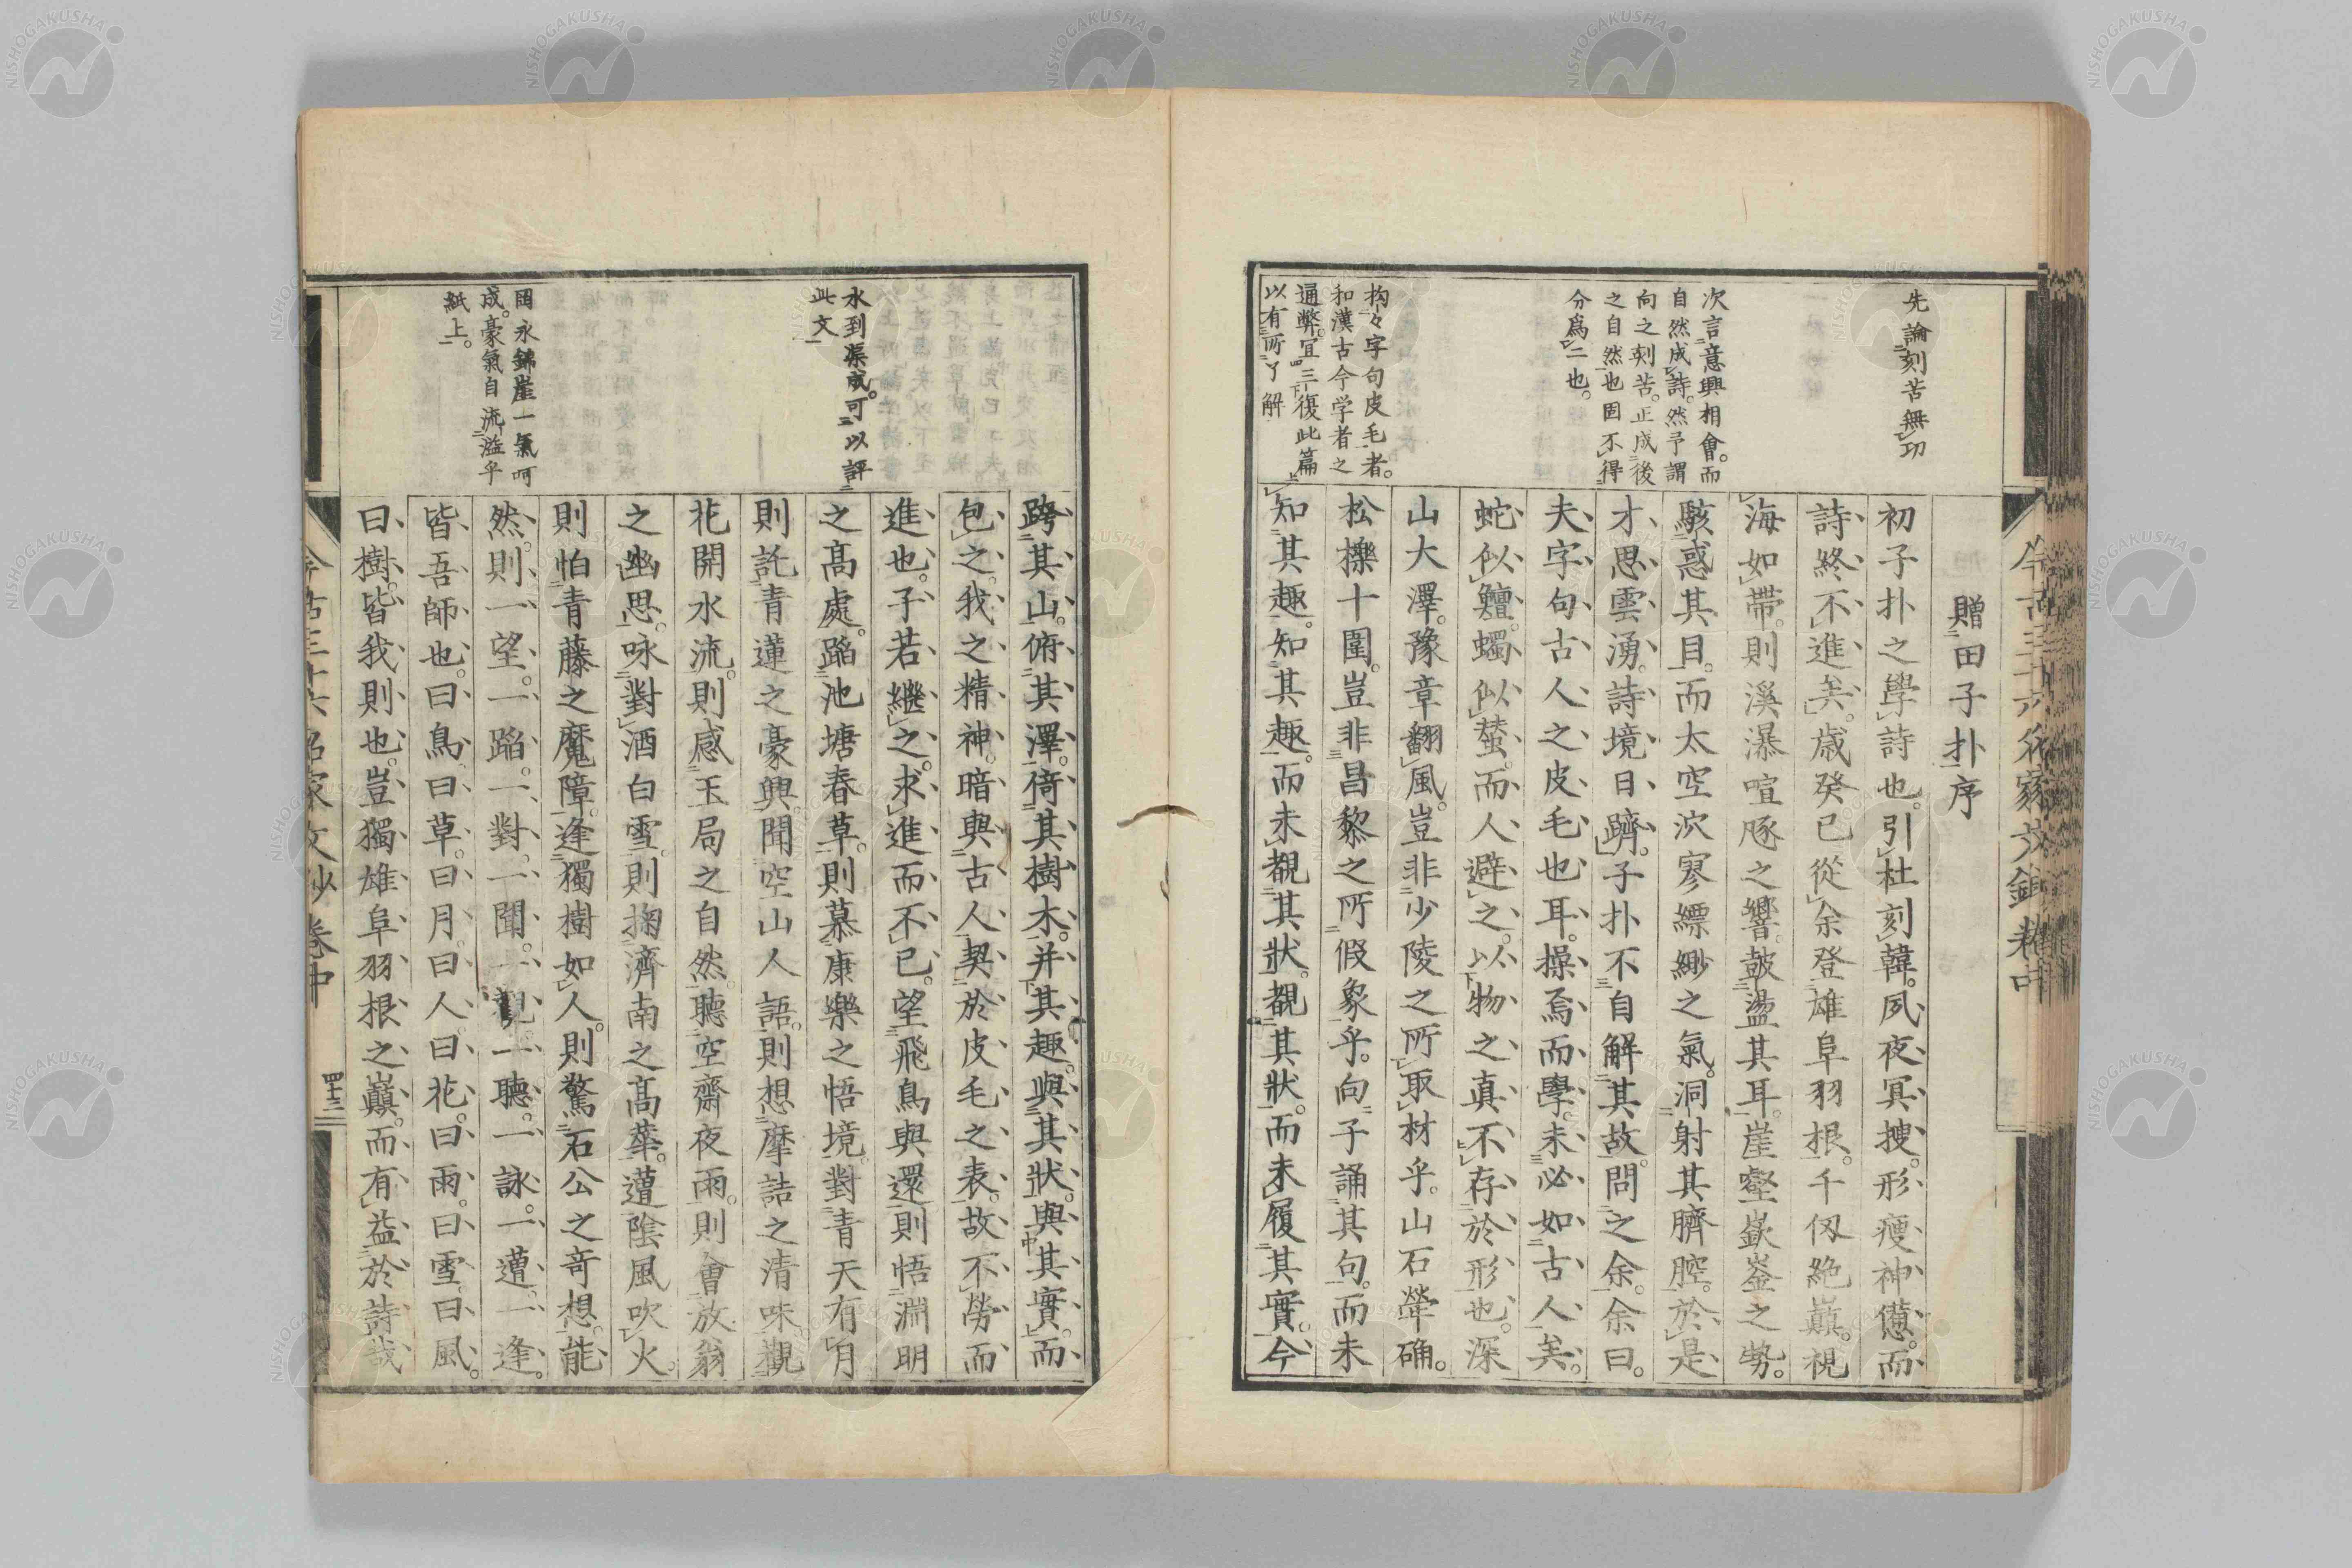 今古三十六名家文鈔卷中
贈田子扑序
初子扑之學詩也。引杜刻韓。夙夜冥搜。形瘦神憊。而
詩終不進矣。歳癸已從余登雄阜羽根。千仭絶巓。視
海如帶。則溪瀑喧豗之響。皷盪其耳。崖壑嶔崟之勢。
駭惑其目。而太空泬寥縹緲之氣。洞射其臍腔。於是
才思雲湧。詩境日躋。子扑不自解其故。問之余。余曰。
夫字句古人之皮毛也耳。操焉而學。未必如古人矣。
蛇似鱣。蠋似蝅。而人避之。以物之真不存於形也。深
山大澤。豫章翻風。豈非少陵之所取材乎。山石犖确。
松櫟十圍。豈非昌黎之所假象乎。向子誦其句。而未
知其趣。知其趣。而未覩其狀。覩其狀。而未履其實。今
先論刻苦無功
次言意興相會。而
自然成詩。然予謂
向之刻苦。正成後
之自然也固不得
分爲二也。
拘々字句皮毛者。
和漢古今学者之
通弊。宜三復此篇
以有所了解
跨其山。俯其澤。倚其樹木。并其趣。與其狀。與其實。而
包之。我之精神。暗與古人契於皮毛之表。故不勞而
進也。子若繼之。求進而不已。望飛鳥與還則悟淵明
之高處。蹈池塘春草。則慕康樂之悟境。對青天有月
則託青蓮之豪興。聞空山人語。則想摩詰之清味觀
花開水流。則感玉局之自然。聽空齋夜雨。則會放翁
之幽思。咏對酒白雪。則掬濟南之高華。遭陰風吹火。
則怕青藤之魔障。逢獨樹如人。則驚石公之竒想。能
然。則一望。一蹈。一對。一聞。一觀一聽。一詠。一遭。一逢。
皆吾師也。曰鳥。曰草。曰月。曰人。曰花。曰雨。曰雪。曰風。
曰樹。皆我則也。豈獨雄阜羽根之巓。而有益於詩哉
水到渠成。可以評
此文
固永錦崖一氣呵
成。豪氣自流溢乎
紙上。
今古三十六名家文鈔卷中
四十三
NISHOGAKUSHA